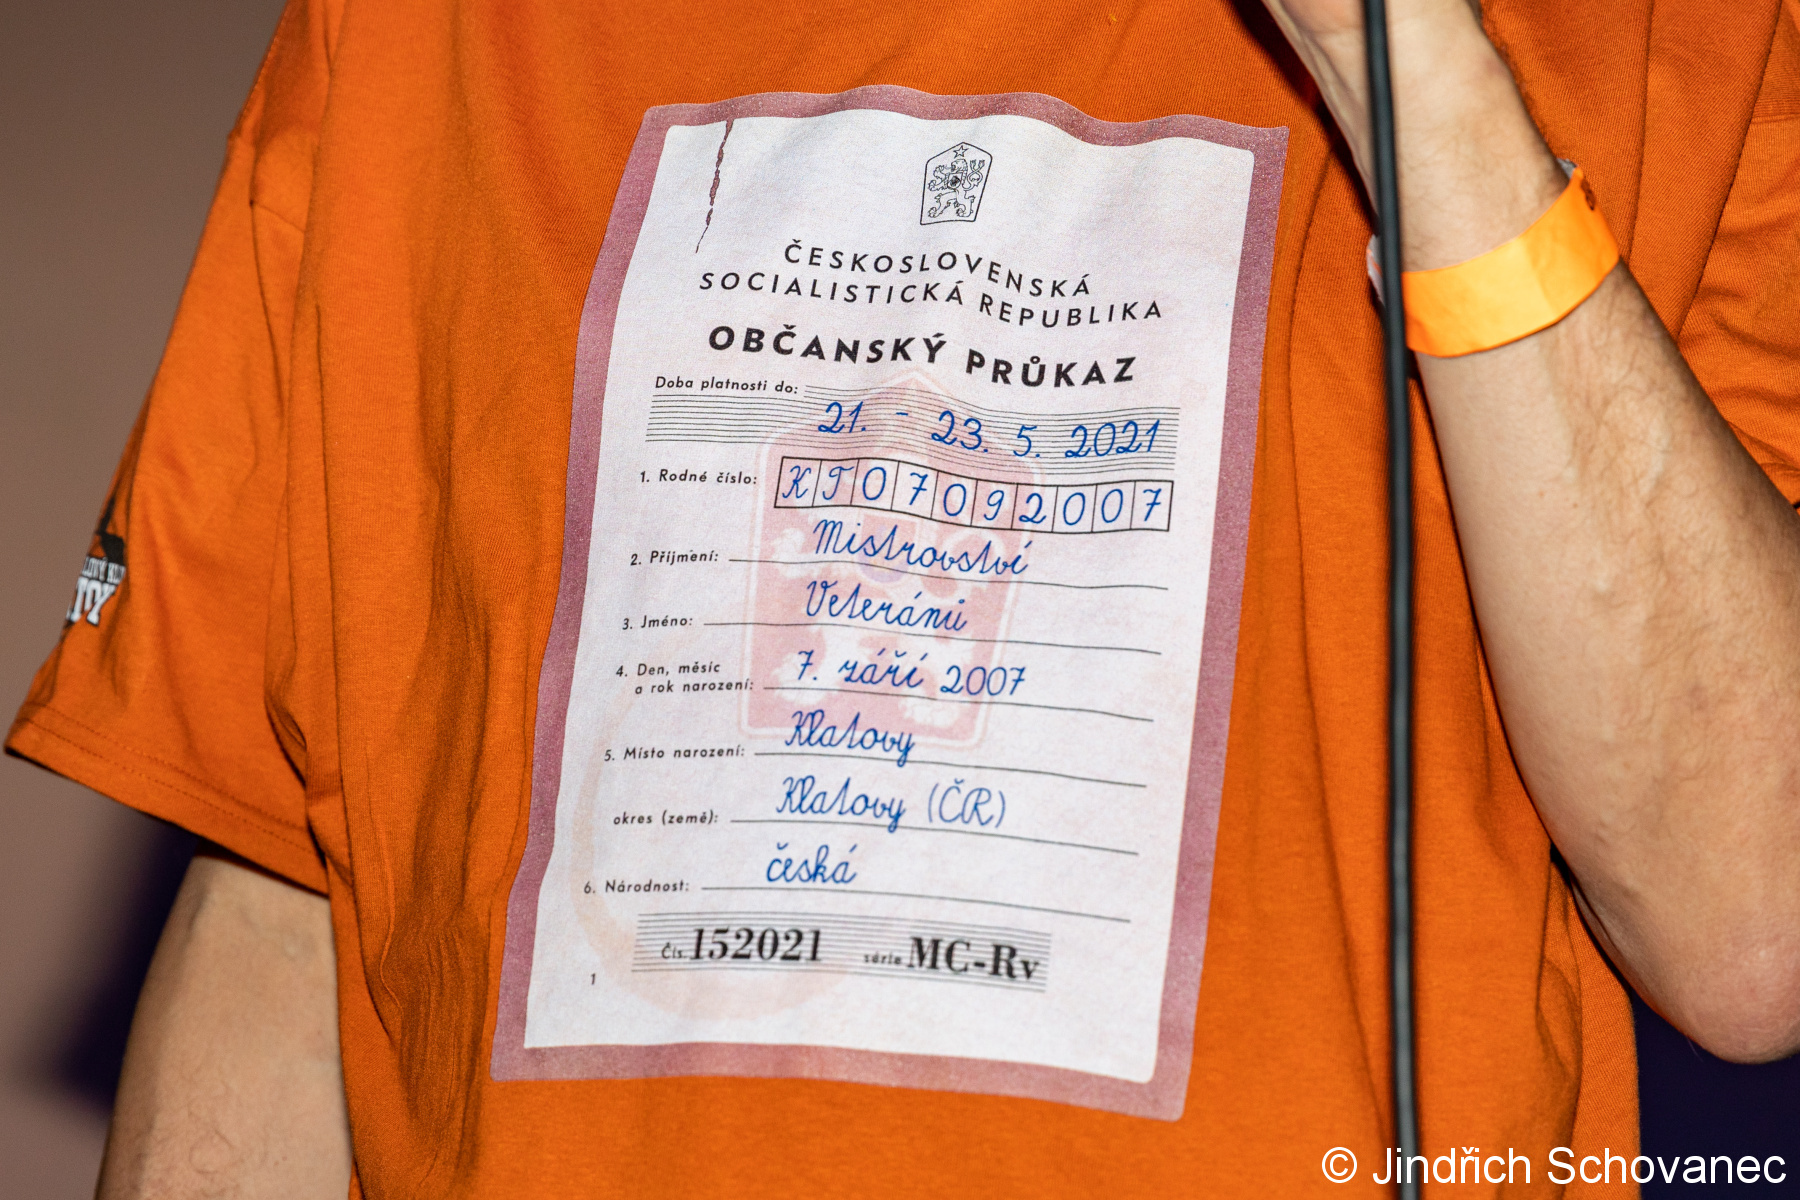 ČESKOSLOVENSKÁ
SOCIALISTICKÁ REPUBLIKA
OBČANSKÝ PRŮKAZ
Doba platnosti do:
21. - 23. 5. 2021
1. Rodné číslo: KT07092007
2. Příjmení: Mistrovství
3. Jméno: Veteránů
4. Den, měsíc
a rok narození: 7. září 2007
5. Místo narození: Klatovy
okres (země): Klatovy (ČR)
6. Národnost: česká
Čís. 152021 série MC-Rv
1
© Jindřich Schovanec